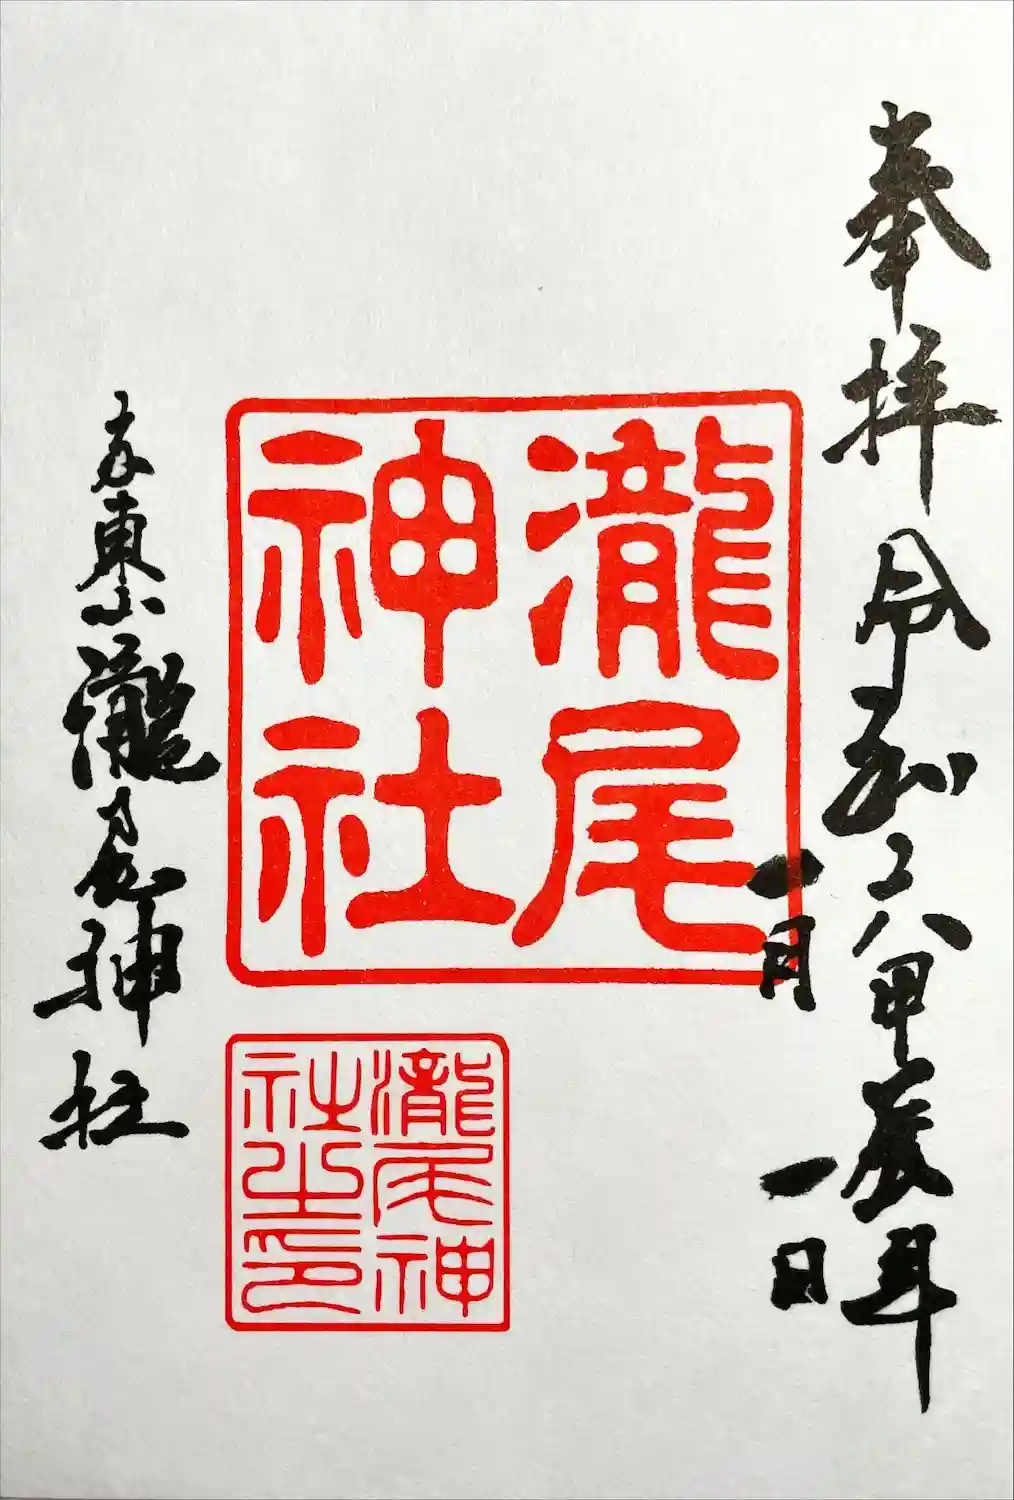 奉拝 令和六甲辰年
一月一日
瀧尾
神社
瀧尾神
社之印
京東山瀧尾神社